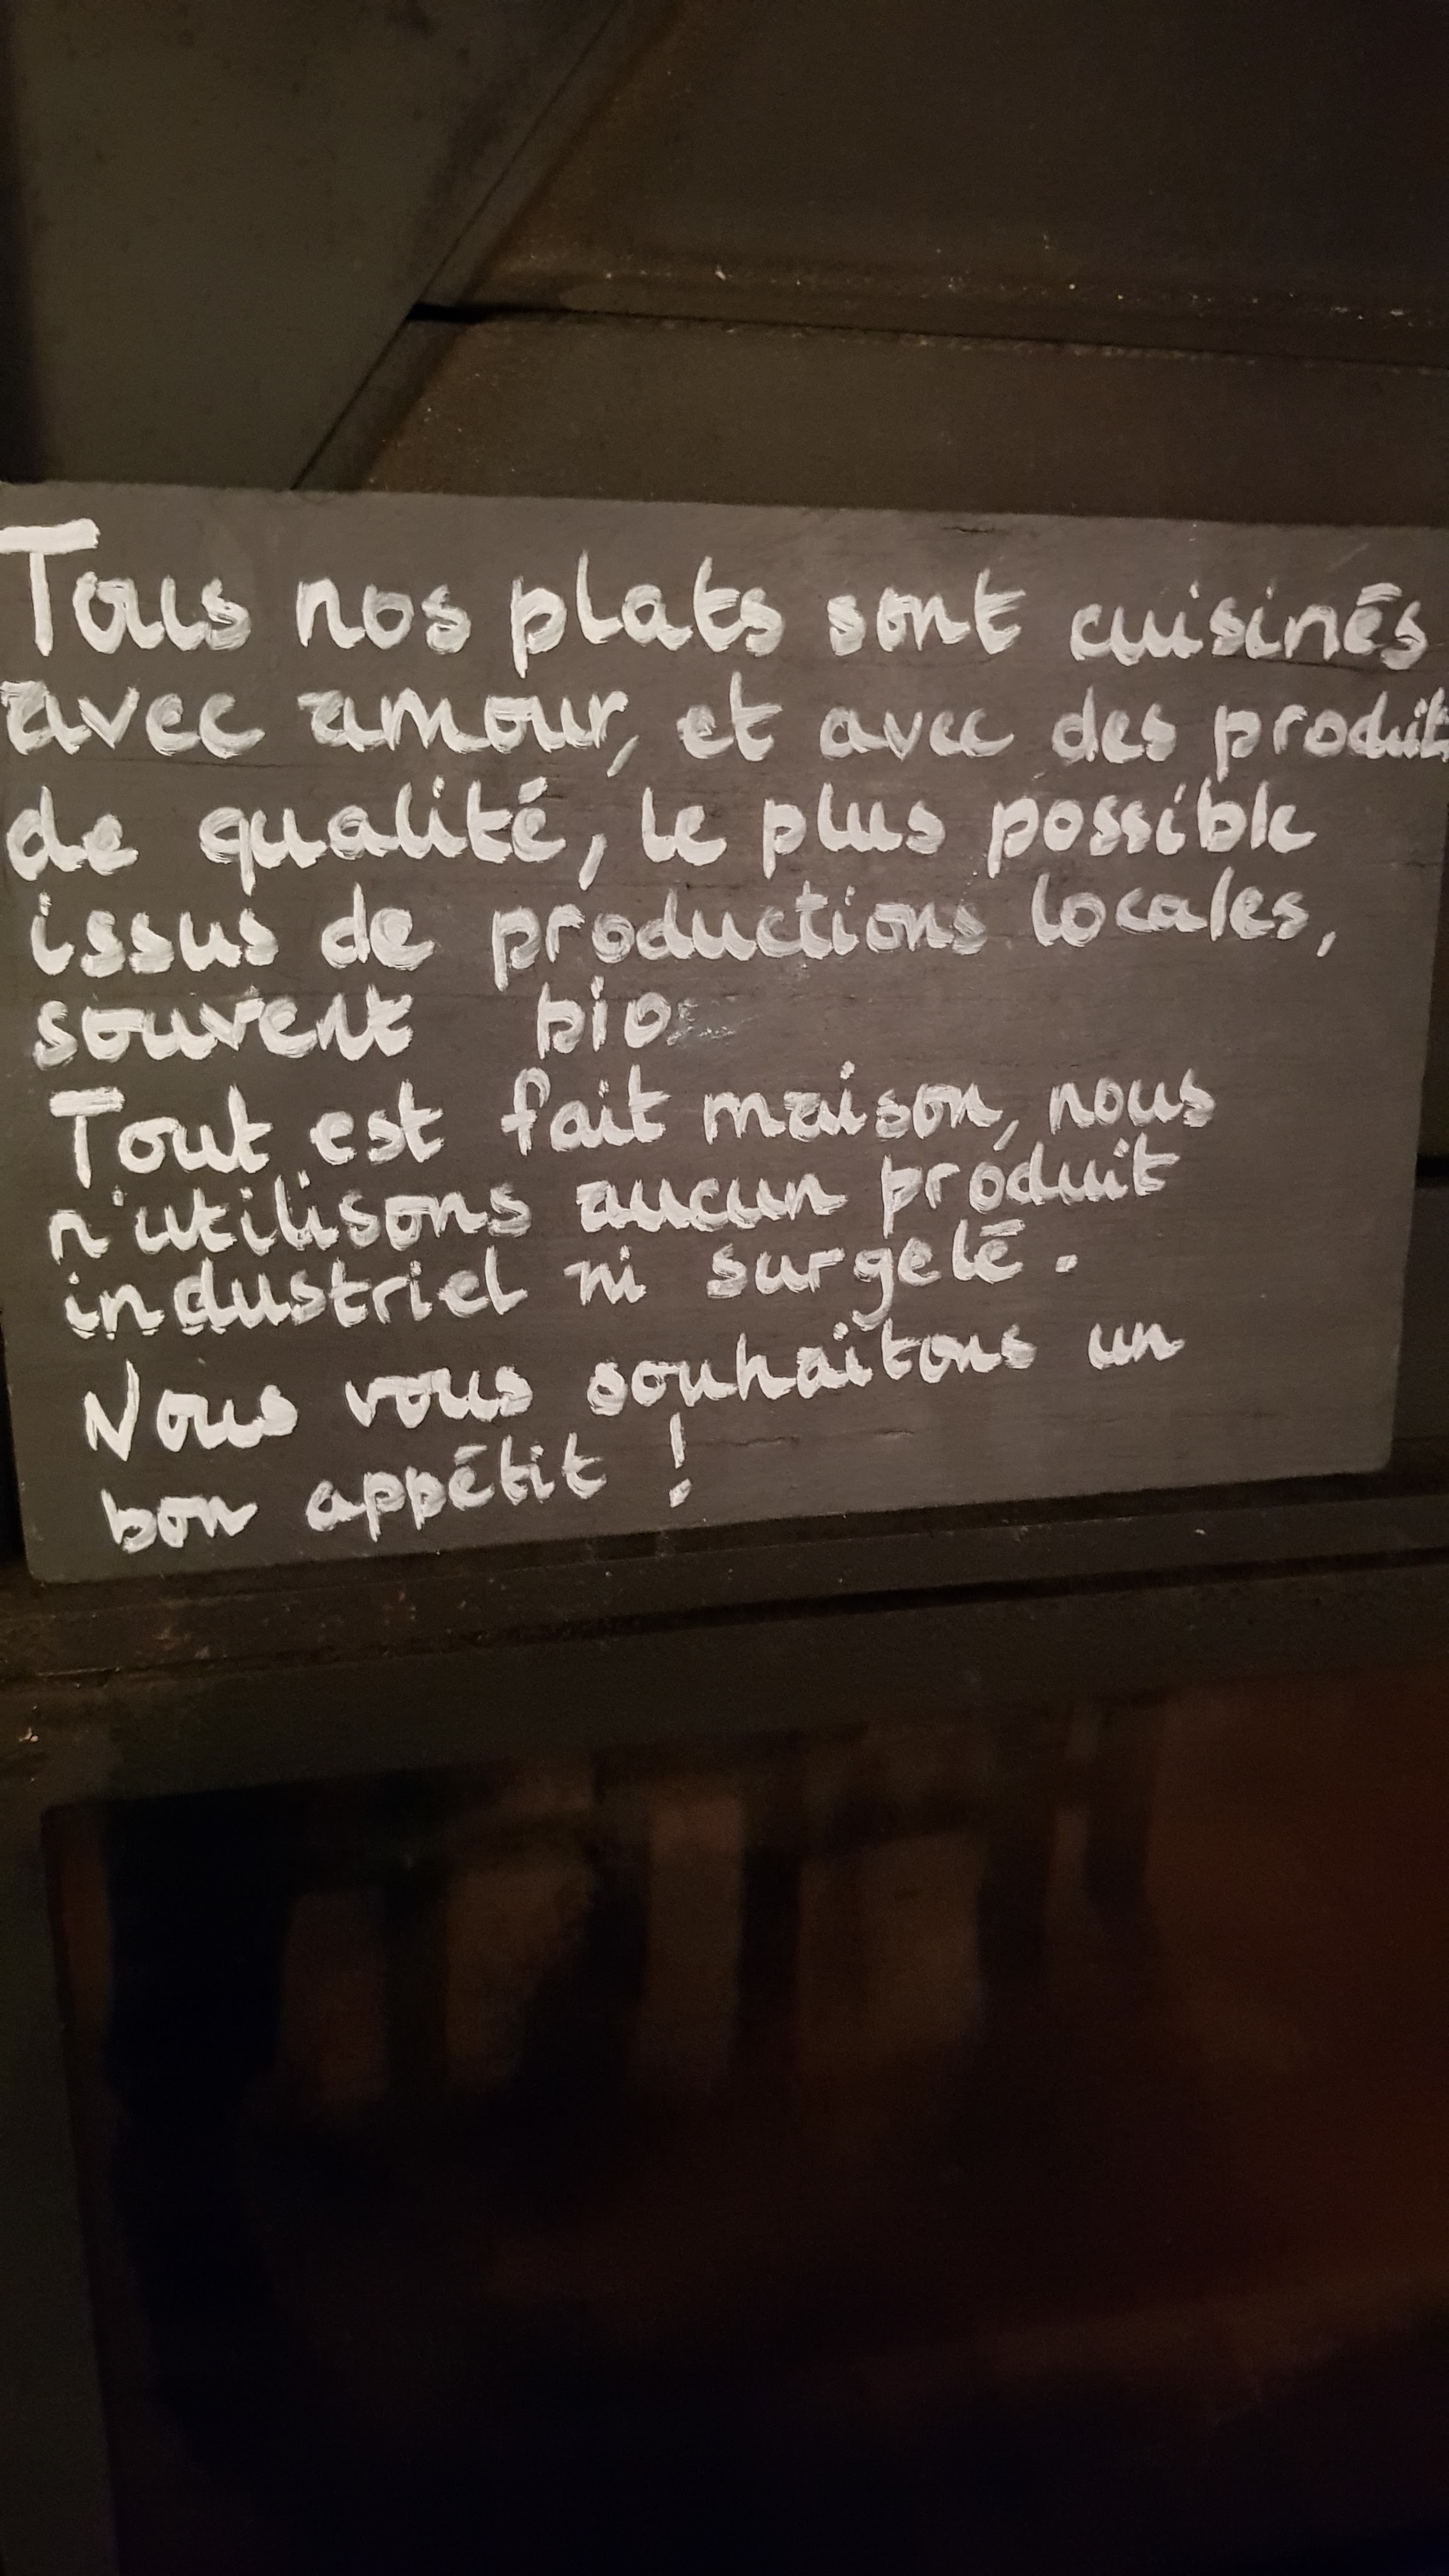 Tous nos plats sont cuisinés
avec amour, et avec des produits
de qualité, le plus possible
issus de productions locales,
souvent bio.
Tout est fait maison, nous
n'utilisons aucun produit
industriel ni surgelé.
Nous vous souhaitons un
bon appétit !